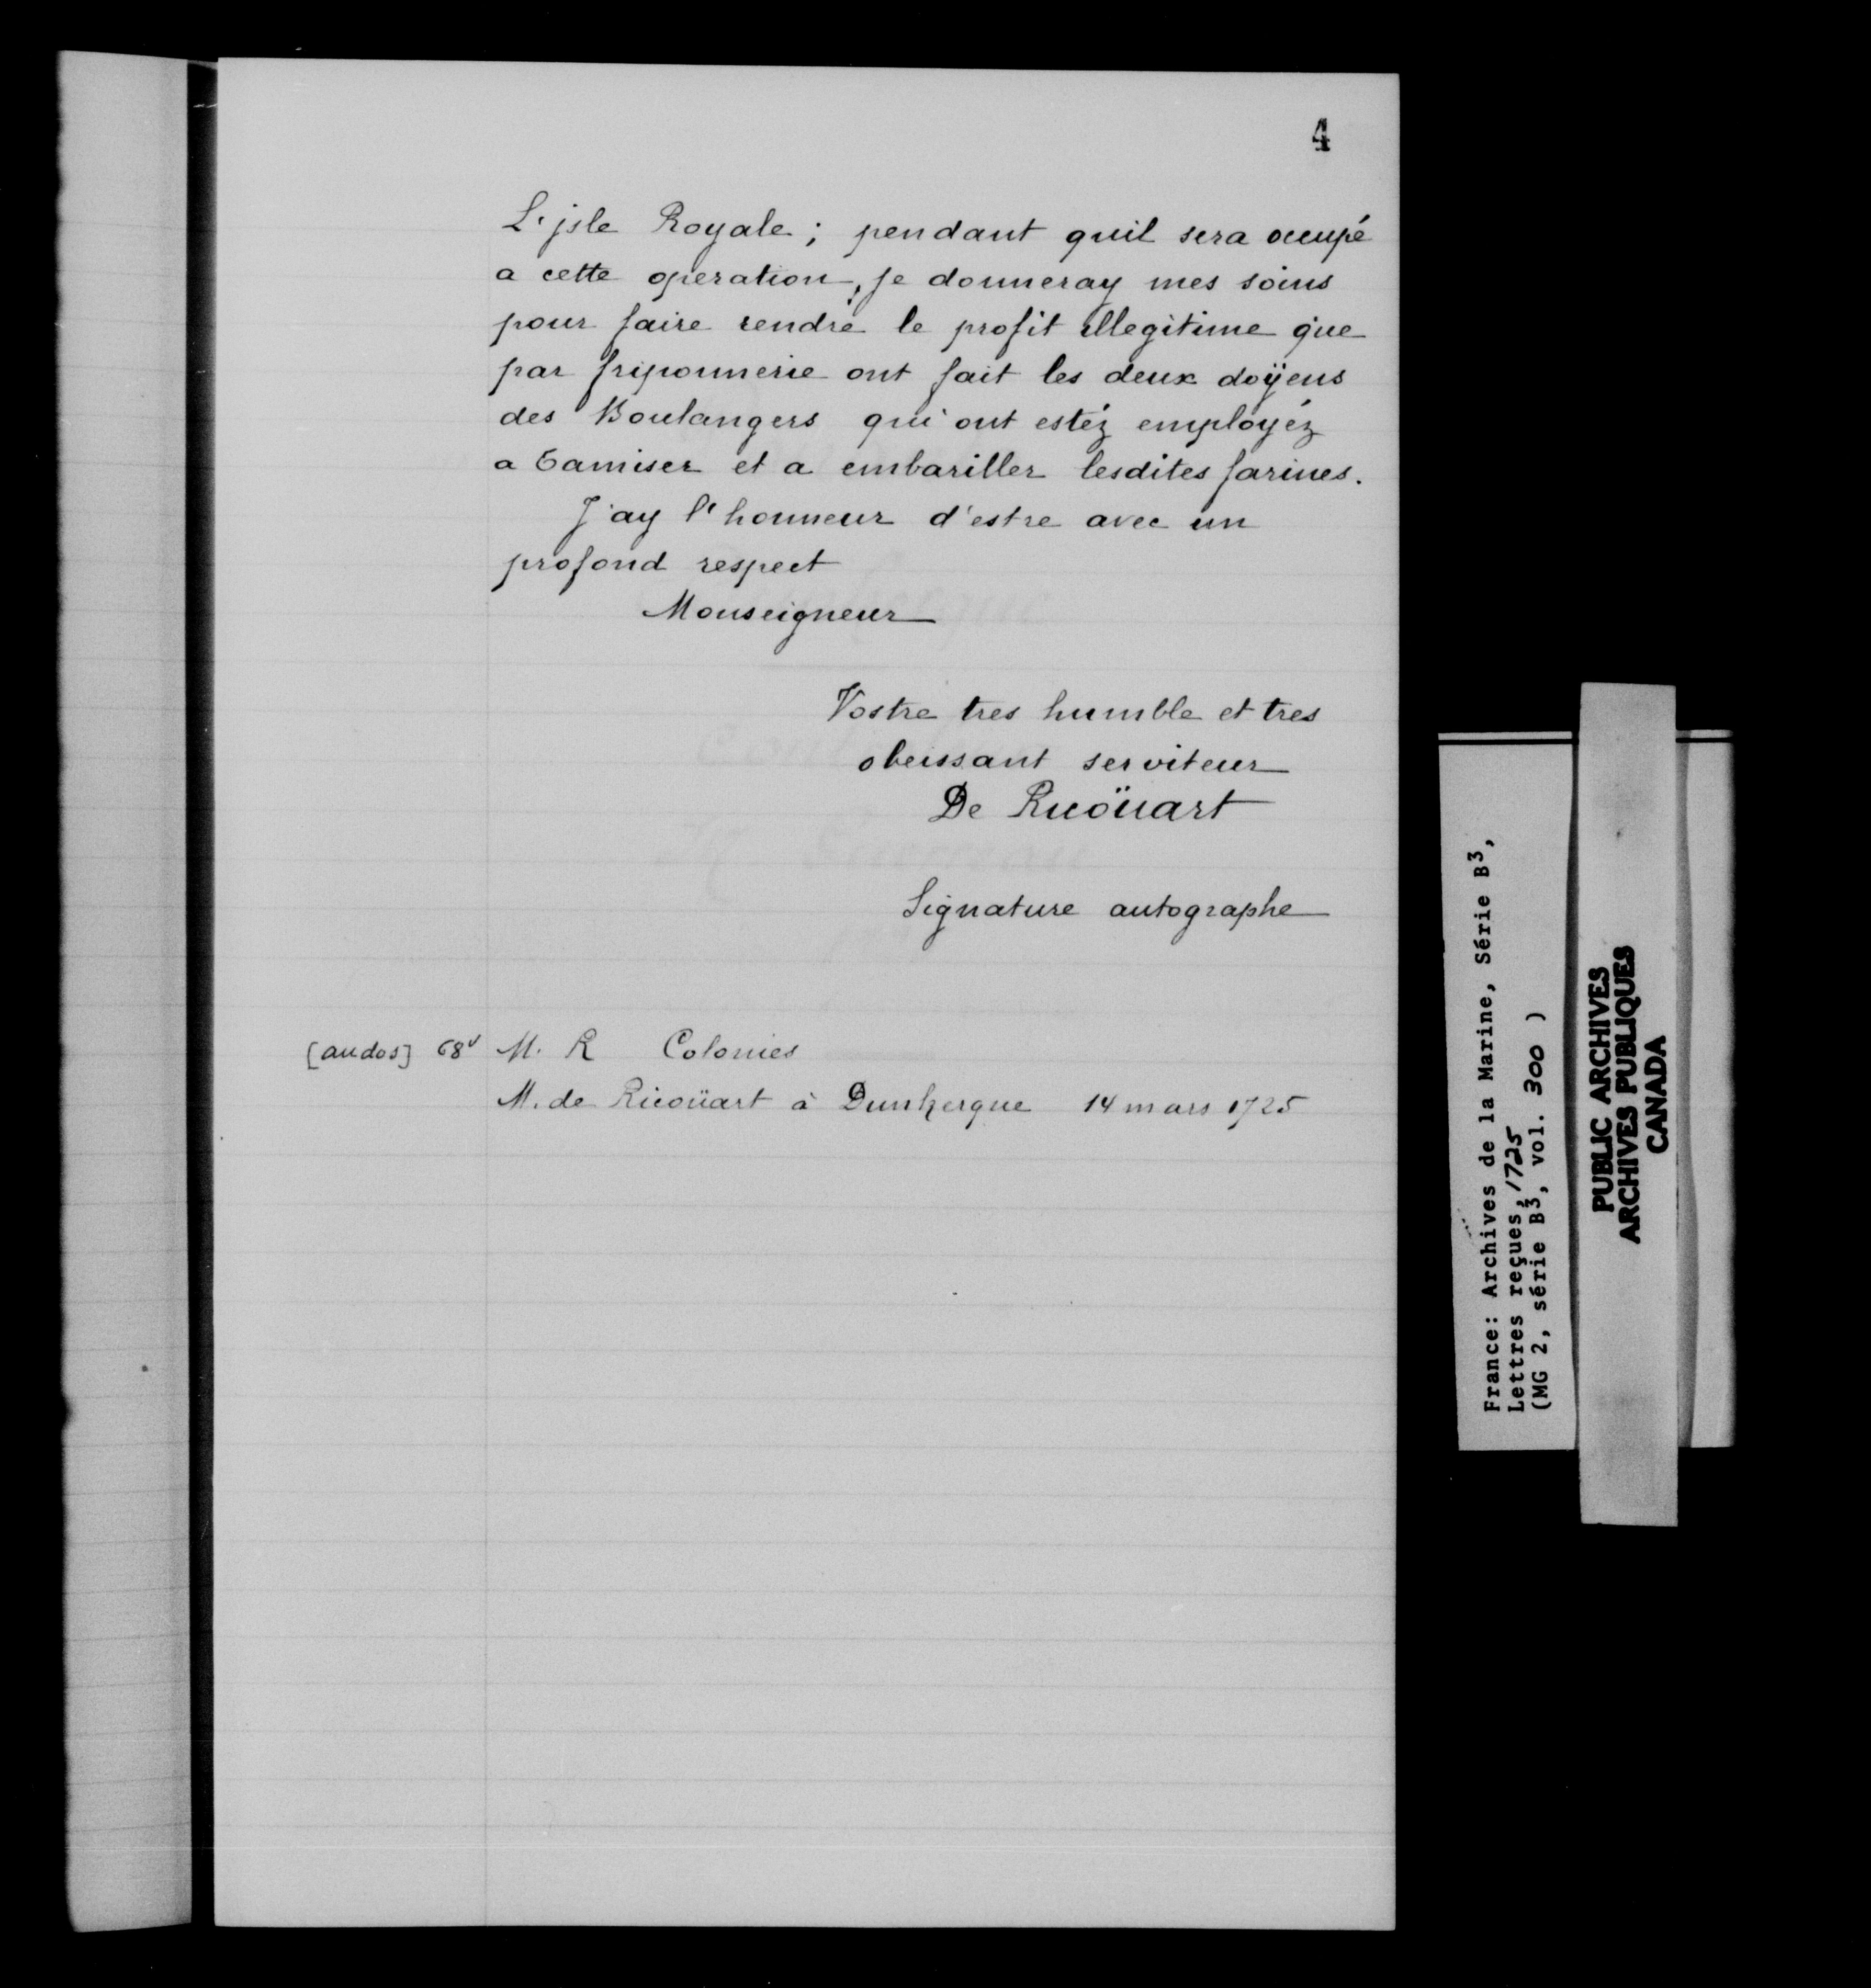 4
L'jsle Royale; pendant quil sera occupé
a cette operation, je donneray mes soins
pour faire rendre le profit illegitime que
par friponnerie ont fait les deux doÿens
des Boulangers qui ont estéz employéz
a Tamiser et a embariller lesdites farines.
J'ay l'honneur d'estre avec un
profond respect
Monseigneur
Vostre tres humble et tres
obeissant serviteur
De Ricoüart
Signature autographe
[au dos] 68v M. R Colonies
M. de Ricoüart à Dunkerque 14 mars 1725
France: Archives de la Marine, Série B3,
Lettres reçues, 1725
(MG 2, série B3, vol. 300 )
PUBLIC ARCHIVES
ARCHIVES PUBLIQUES
CANADA